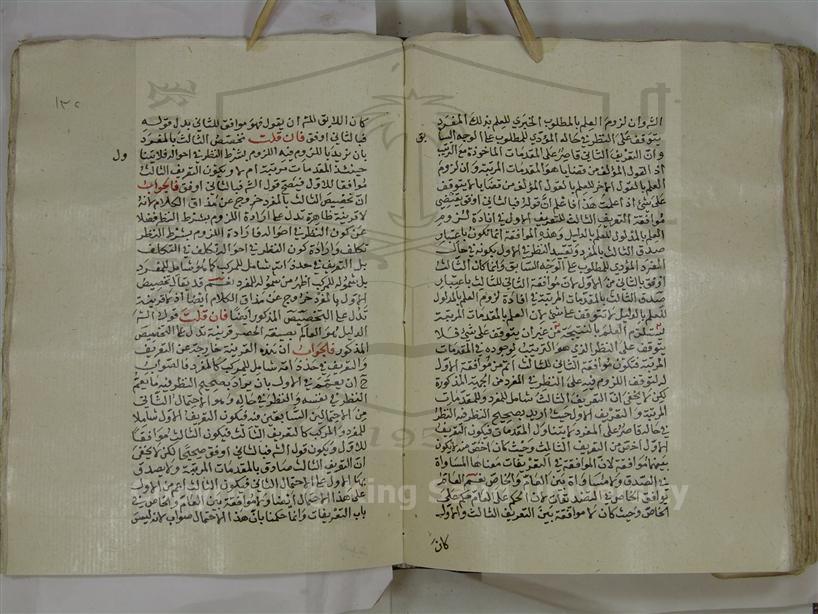 الشر وان لزوم العلم بالمطلوب الخبري للعلم بذلك المفرد
يتوقف على النظر في حاله المؤدي للمطلوب على الوجه السا
بق
وان التعريف الثاني قاصر على المقدمات الماخوذة مع الترتيب
اذ القول المؤلف من قضايا هو المقدمات المرتبة وان لزوم
العلم بالقول الاخر للعلم بالقول المؤلف من قضايا لا يتوقف
على شيء اذا علمت هذا فاعلم ان قوله فبالثاني اوفق يقتضي
موافقة التعريف الثالث للتعريف الاول في افادة لزوم
العلم بالمدلول للعلم بالدليل وهذه الموافقة انما تكون باعتبار
صدق الثالث بالمفرد وتقييد النظر في الاول بكونه في حالة
المفرد المؤدي للمطلوب على الوجه السابق وانما كان الثالث
اوفق بالثاني من الاول لان موافقة الثاني للثالث باعتبار
صدق الثالث بالمقدمات المرتبة في افادة لزوم العلم بالمدلول
للعلم بالدليل لا تتوقف على شيء لان العلم بالمقدمات المرتبة
يستلزم العلم بالنتيجة من غير ان يتوقف على شيء فلا
يتوقف على النظر الذي هو الترتيب لوجوده في المقدمات
المرتبة فتكون موافقة الثاني للثالث اتم من موافقة الاول
له لتوقف اللزوم فيه على النظر في المفرد من الجهة المذكورة
لكن لا يخفى ان التعريف الثالث شامل للمفرد والمقدمات
المرتبة والتعريف الاول حيث اريد بصحيح النظر فيه النظر
في حاله قاصر على المفرد لا يتناول المقدمات فيكون التعريف
الاول اخص من التعريف الثالث وحيث كان اخص منه لا يكون
بينهما موافقة لان الموافقة في التعريفات معناها المساواة
في الصدق ولا مساواة بين العام والخاص نعم العام
يوافق الخاص في التصديقات لان الحكم على العام حكم على
الخاص وحيث كان لا موافقة بين التعريف الثالث والاول
كان
١٣٢
كان اللائق للشر ان يقول فهو موافق للثاني بدل قوله
فبالثاني اوفق فان قلت تخصيص الثالث بالمفرد
بان نريد باللزوم فيه اللزوم بشرط النظر في احواله فلا يتنا
ول
حينئذ المقدمات مرتبة ام لا ويكون التعريف الثالث
موافقا للاول فيصح قول الشر فبالثاني اوفق فالجواب
ان تخصيص الثالث بالمفرد خروج عن مذاق الكلام لانه
لا قرينة ظاهرة تدل على ارادة اللزوم بشرط النظر فضلا
عن كون النظر في احواله فارادة اللزوم بشرط النظر
تكلف وارادة كون النظر في احواله تكلف في التكلف
بل التعريف في حد ذاته شامل للمركب كما هو شامل للمفرد
بل شموله للمركب اظهر من شموله للمفرد نعم قد يقال تخصيص
الاول بالمفرد خروج عن مذاق الكلام ايضا اذ لا قرينة
تدل على التخصيص المذكور ايضا فان قلت قول الشر
الدليل هو العالم بصيغة الحصر قرينة تدل على التخصيص
المذكور فالجواب ان هذه القرينة خارجة عن التعريف
والتعريف في حد ذاته شامل للمركب كالمفرد فالصواب
ح ان يعمم في الاول بان يراد بصحيح النظر فيه ما يعم
النظر في نفسه والنظر في حاله وهو الاحتمال الثاني
من الاحتمالين السابقين فيه فيكون التعريف الاول شاملا
للمفرد والمركب كالتعريف الثالث فيكون الثالث موافقا
للاول ويكون قول الشر فبالثاني اوفق صحيحا لكن لا يخفى
ان التعريف الثالث صادق بالمقدمات المرتبة ولا يصدق
بها الاول على الاحتمال الثاني فيكون الثالث اعم من الاول
على هذا الاحتمال ايضا ولا موافقة بين العام والخاص في
باب التعريفات وانما حكمنا بان هذا الاحتمال صواب لانه ليس